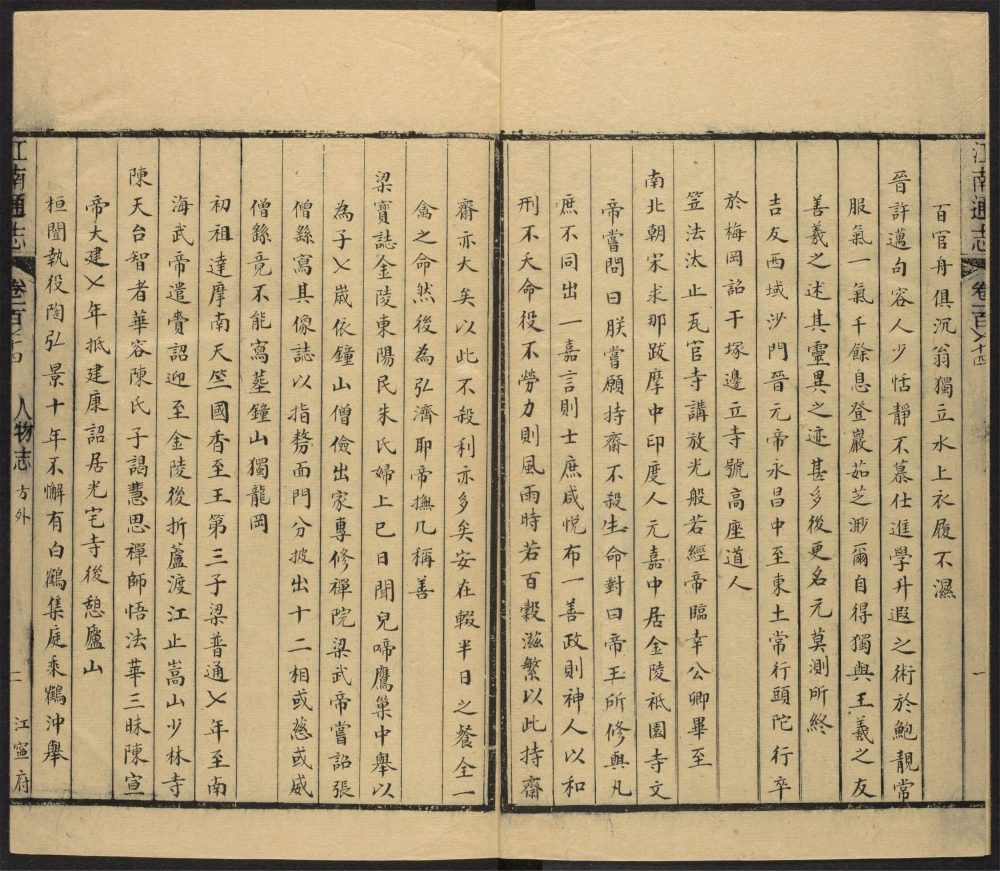 江南通志
卷一百七十四
一
百官舟俱沉翁獨立水上衣履不濕
晉許邁句容人少恬靜不慕仕進學升遐之術於鮑靚常
服氣一氣千餘息登巖茹芝渺爾自得獨與王羲之友
善羲之述其靈異之迹甚多後更名元莫測所終
吉友西域沙門晉元帝永昌中至東土常行頭陀行卒
於梅岡詔于塚邊立寺號高座道人
笠法汰止瓦官寺講放光般若經帝臨幸公卿畢至
南北朝宋求那跋摩中印度人元嘉中居金陵祗園寺文
帝嘗問曰朕嘗願持齋不殺生命對曰帝王所修與凡
庶不同出一嘉言則士庶咸悅布一善政則神人以和
刑不夭命役不勞力則風雨時若百穀滋繁以此持齋
齋亦大矣以此不殺利亦多矣安在輟半日之餐全一
禽之命然後為弘濟耶帝撫几稱善
梁寶誌金陵東陽民朱氏婦上巳日聞兒啼鷹巢中舉以
為子七嵗依鐘山僧儉出家專修禪院梁武帝嘗詔張
僧繇寫其像誌以指剺面門分披出十二相或慈或威
僧繇竟不能寫葬鐘山獨龍岡
初祖達摩南天竺國香至王第三子梁普通七年至南
海武帝遣賫詔迎至金陵後折蘆渡江止嵩山少林寺
陳天台智者華容陳氏子謁慧思禪師悟法華三昧陳宣
帝大建七年抵建康詔居光宅寺後憩廬山
桓闓執役陶弘景十年不懈有白鶴集庭乘鶴沖舉
江南通志
卷一百七十四
人物志
方外
二
江寧府